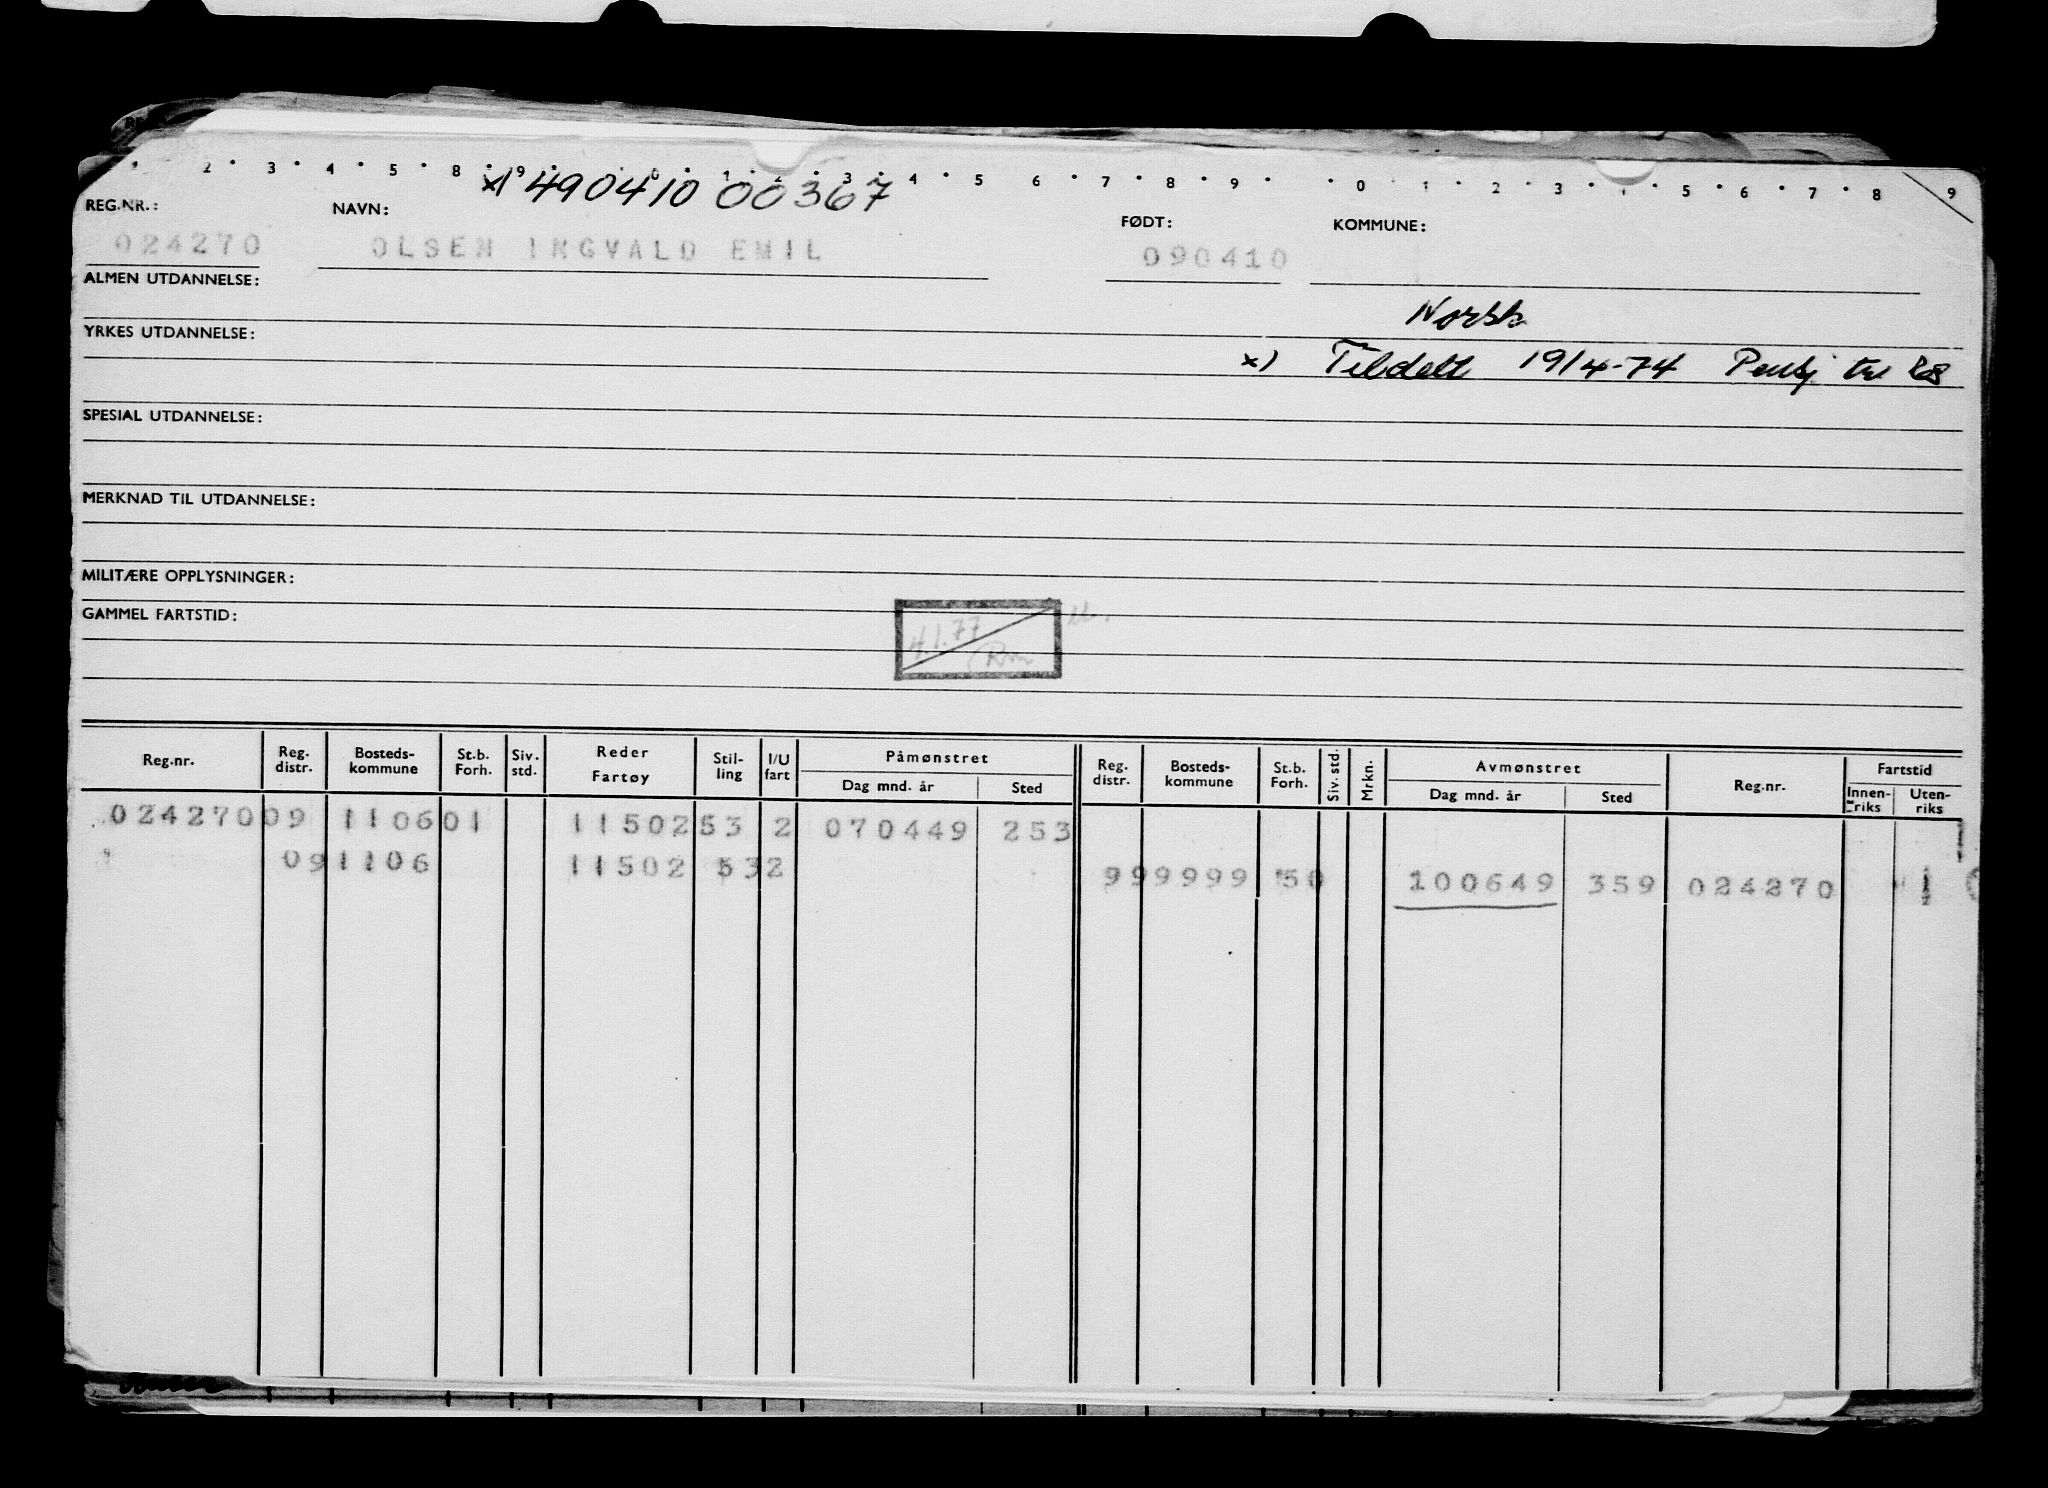 2 3 4 5 8 9 0 1 2 3 4 5 6 7 8 9 0 1 2 3 4 5 6 7 8 9
x) 490410 00367
REG.NR.: NAVN: FØDT: KOMMUNE:
024270 OLSEN INGVALD EMIL 090410
ALMEN UTDANNELSE:
Norsk
YRKES UTDANNELSE:
x) Tildelt 19/4-74
SPESIAL UTDANNELSE:
MERKNAD TIL UTDANNELSE:
MILITÆRE OPPLYSNINGER:
GAMMEL FARTSTID:
4.1.77
Reg.nr. Reg. distr. Bosteds-kommune St.b. Forh. Siv. std. Reder Fartøy Stil-ling I/U fart Påmønstret Dag mnd. år Sted Reg. distr. Bosteds-kommune St.b. Forh. Siv. std. Mrkn. Avmønstret Dag mnd. år Sted Reg.nr. Fartstid Innen-riks Uten-riks
024270 09 1106 01 11502 53 2 070449 253
09 1106 11502 53 2 99 9999 50 100649 359 024270 1